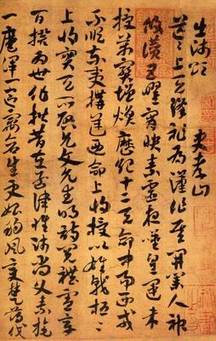 出師頌
史孝山
茫茫上天降祚為漢作基開業人神
攸讚五曜霄映素靈夜歎皇運來
授萬寶增煥歷紀十二天命中易西戎
不順東夷遘逆乃命上將授以雄戟桓桓
上將寔天所啟允文允武明詩閱禮憲章
百揆為世作楷昔在孟津惟師尚父素旄
一麾渾一區宇蒼生更始朔風變楚薄伐